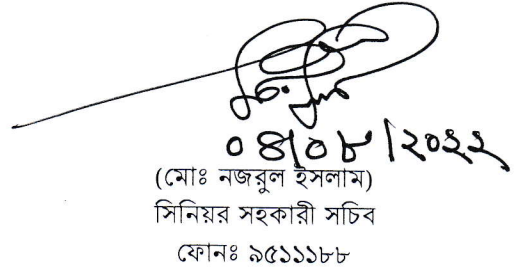 ০৪/০৮/২০২২
(মোঃ নজরুল ইসলাম)
সিনিয়র সহকারী সচিব
ফোনঃ ৯৫১১১৮৮